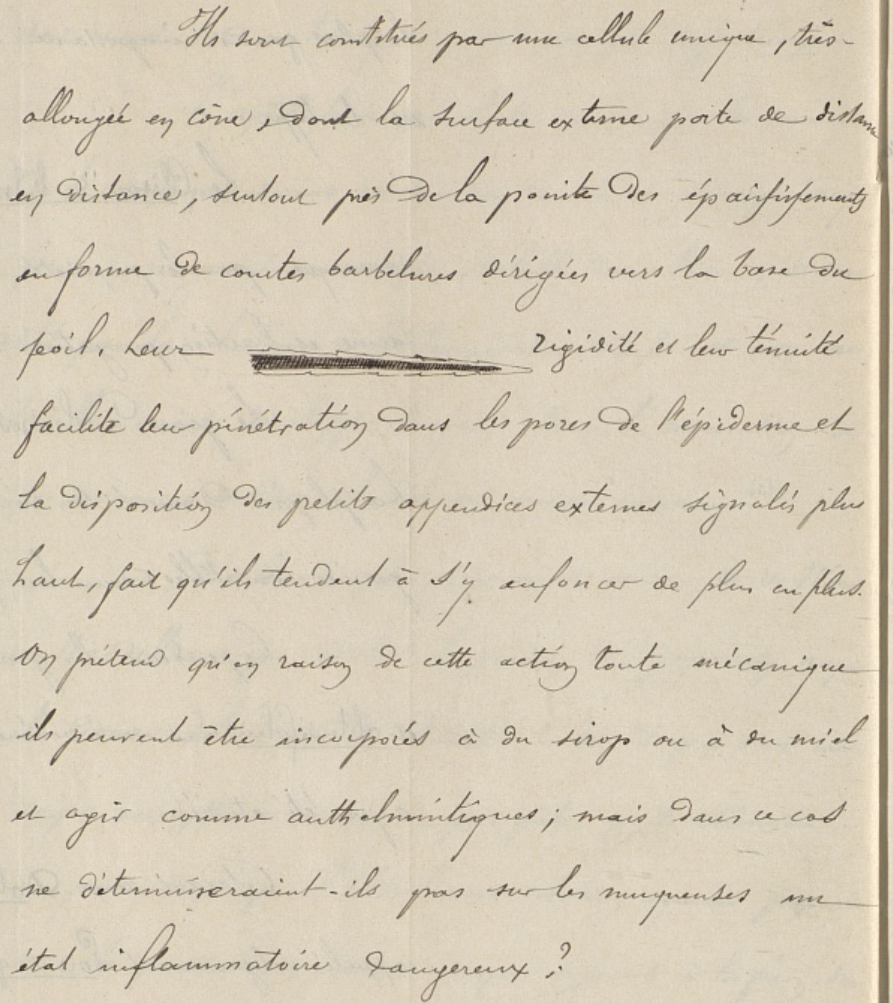 Ils sont constitués par une cellule unique, très-
allongée en cône, dont la surface externe porte de distance
en distance, surtout près de la pointe des épaississements
en forme de courtes barbelures dirigées vers la base du
poil. Leur rigidité et leur ténuité
facilite leur pénétration dans les pores de l'épiderme et
la disposition des petits appendices externes signalés plus
haut, fait qu'ils tendent à s'y enfoncer de plus en plus.
On prétend qu'en raison de cette action toute mécanique
ils peuvent être incorporés à du sirop ou à du miel
et agir comme anthelmintiques ; mais dans ce cas
ne détermineraient-ils pas sur les muqueuses un
état inflammatoire dangereux ?